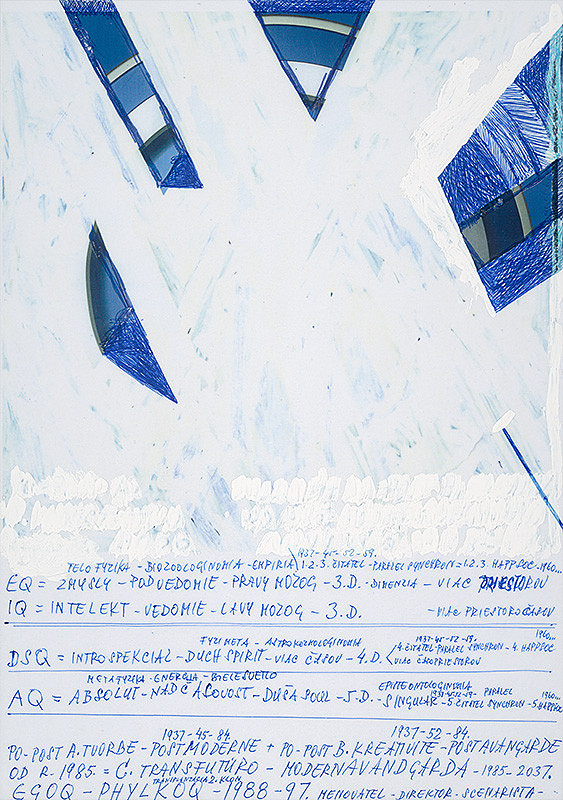 TELO FYZIKA - BIOZOOLOGINOMIA - EMPIRIA
1937-45-52-59.
1.2.3. ČITATEL - PARALEL SYNCHRON = 1.2.3. HAPP.SOC. 1960...
EQ = ZMYSLY - PODVEDOMIE - PRAVY MOZOG - 3.D. - DIMENZIA - VIAC PRIESTOROV
IQ = INTELEKT - VEDOMIE - LAVY MOZOG - 3.D. - VIAC PRIESTOROČASOV
FYZI META - ASTROKOZMOLOGINOMIA
1937-45-52-59. 1960...
4. ČITATEL - PARALEL SYNCHRON - 4. HAPP.SOC
DSQ = INTROSPEKCIAL - DUCH SPIRIT - VIAC ČASOV - 4.D. VIAC ČASOPRIESTOROV
METAFYZIKA - ENERGIA - BIELE SVETLO
EPISTEONTOLOGINOMIA
1937-45-52-59. PARALEL 1960...
AQ = ABSOLUT - NADČASOVOST - DUŠA SOUL - 5.D. - SINGULAR - 5. ČITATEL SYNCHRON - 5. HAPP.SOC
1937-45-84. 1937-52-84.
PO-POST A. TVORBE - POSTMODERNE + PO-POST B. KREATIVITE - POSTAVANGARDE
OD R. 1985. = C. TRANSFUTÚRO - MODERNAVANDGARDA - 1985-2037.
EGOQ - PHYLKOQ - 1988-97. MENOVATEL - DIREKTOR - SCENARISTA -